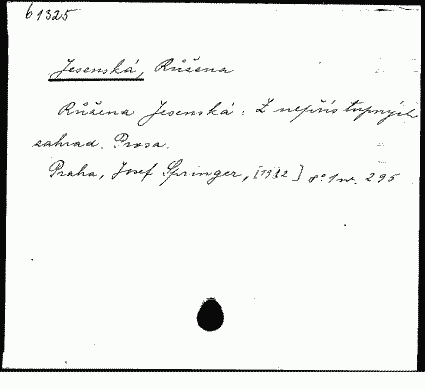 61325
Jesenská, Růžena
Růžena Jesenská: Z nepřístupných
zahrad. Prosa.
Praha, Josef Springer, 8° 295